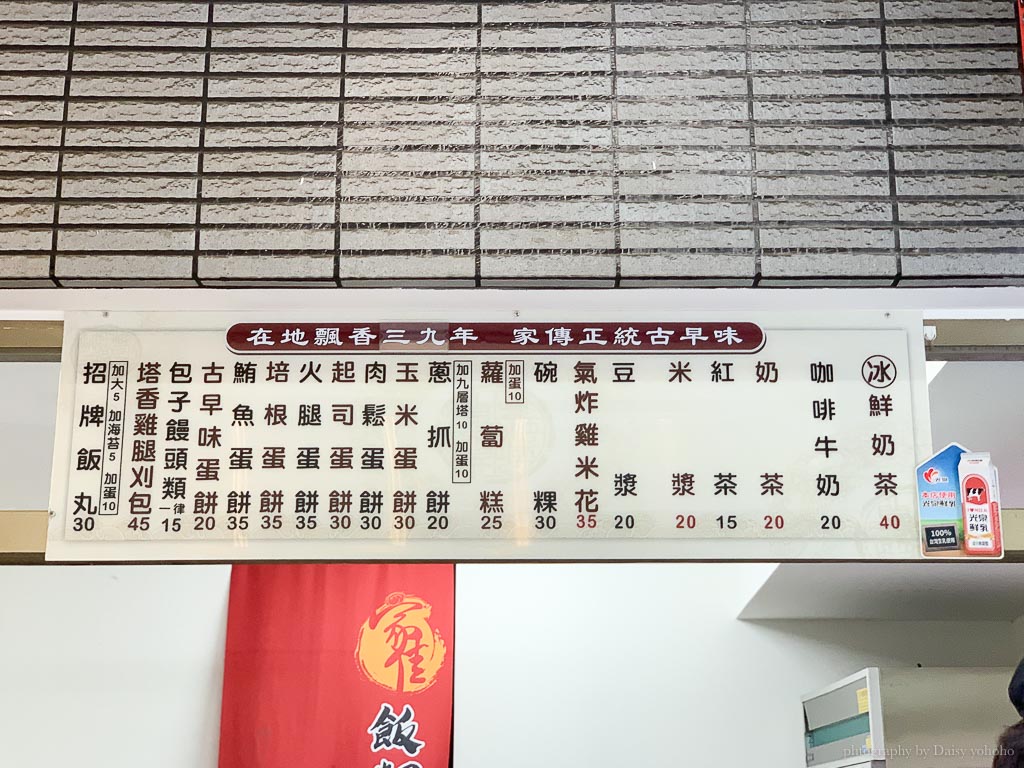 在地飄香三九年 家傳正統古早味
招牌飯丸 30
加大5 加海苔5 加蛋10
塔香雞腿刈包 45
包子饅頭類 一律 15
古早味蛋餅 20
鮪魚蛋餅 35
培根蛋餅 35
火腿蛋餅 35
起司蛋餅 30
肉鬆蛋餅 30
玉米蛋餅 30
蔥抓餅 20
加九層塔10 加蛋10
蘿蔔糕 25
加蛋10
碗粿 30
氣炸雞米花 35
豆漿 20
米漿 20
紅茶 15
奶茶 20
咖啡牛奶 20
冰鮮奶茶 40
光泉
本店使用
光泉鮮乳
100%
光泉
鮮乳
飯
photography by Daisy yohoho